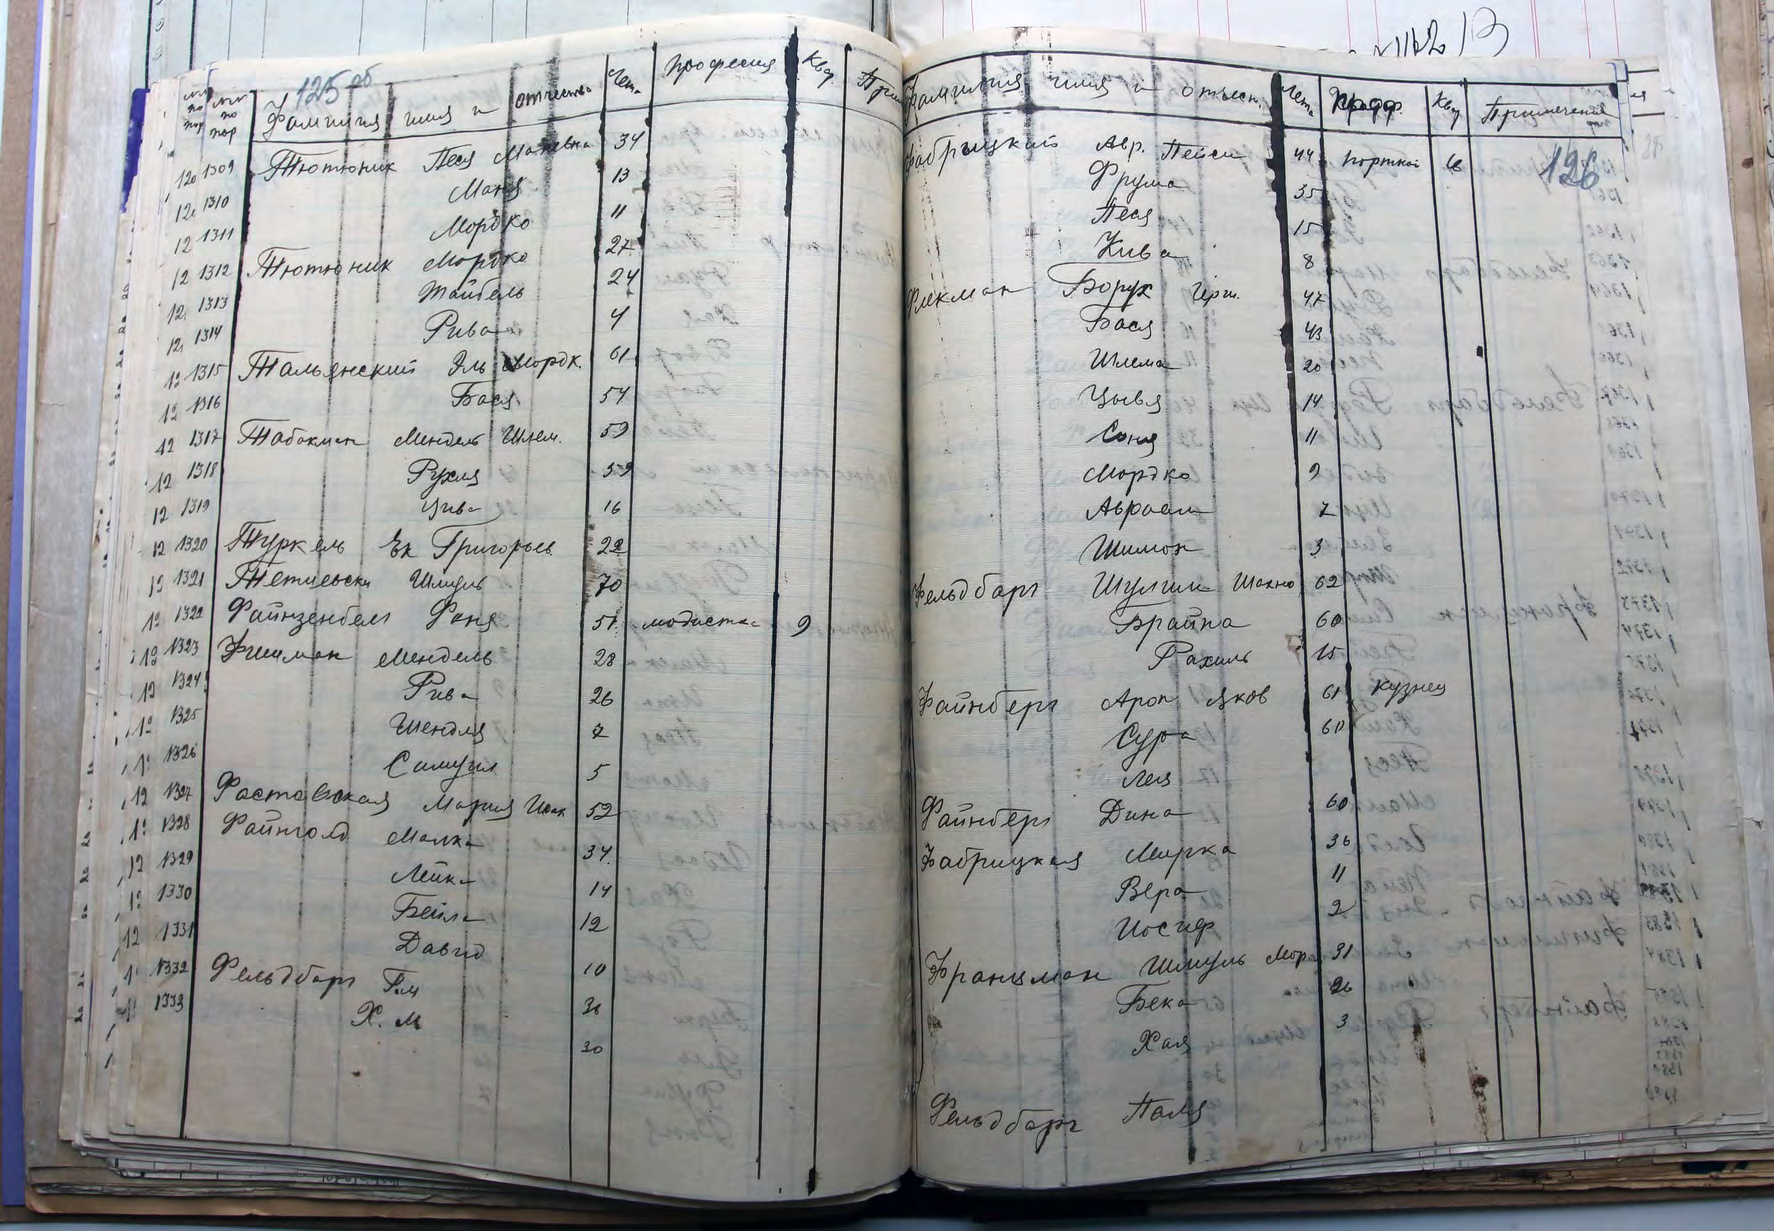 125 об
№№ по пор №№ по пор Фамилия имя и отчество Лета Профессия Квд. Прим
1309 Тютюник Песя Матевна 34
1310 Маня 13
1311 Мордко 11
1312 Тютюник Мордко 27
1313 Тайбель 24
1314 Рива 4
1315 Тальянский Эль Мордк. 61
1316 Бася 54
1317 Табакман Мендель Шлем. 59
1318 Рухля 59
1319 Цива 16
1320 Туркель Эк Григорьев. 22
1321 Тетиевски Шмуль 70
1322 Файнзенбелг Фаня 51 модистка 9
1323 Фишман Мендель 28
1324 Рива 26
1325 Шендля 7
1326 Самуил 5
1327 Фастовская Мария Исак 52
1328 Файнголд Малка 34
1329 Лейка 14
1330 Бейла 12
1331 Давид 10
1332 Фельдбарг 30
1333 Х. М 30
Фамилия имя и отчест. Лета Профф. Квд Примечание
126
Фабрицкий Авр. Пейси 44 портной 6
Фрума 35
Песя 15
Кива 8
Фикман Борух Герш. 47
Бася 43
Шлема 20
Цывя 14
Соня 11
Мордко 9
Авроам 7
Шимон 3
Фельдбарг Шулим Шахно 62
Брайна 60
Рахиль 15
Файнберг Арон Яков 61 кузнец
Сура 60
Лея
Файнберг Дина 60
Фабрицкая Мирка 36
Вера 11
Иосиф 2
Францман Шмуль Мор 31
Бека 26
Хая 3
Фельдбарг Поля